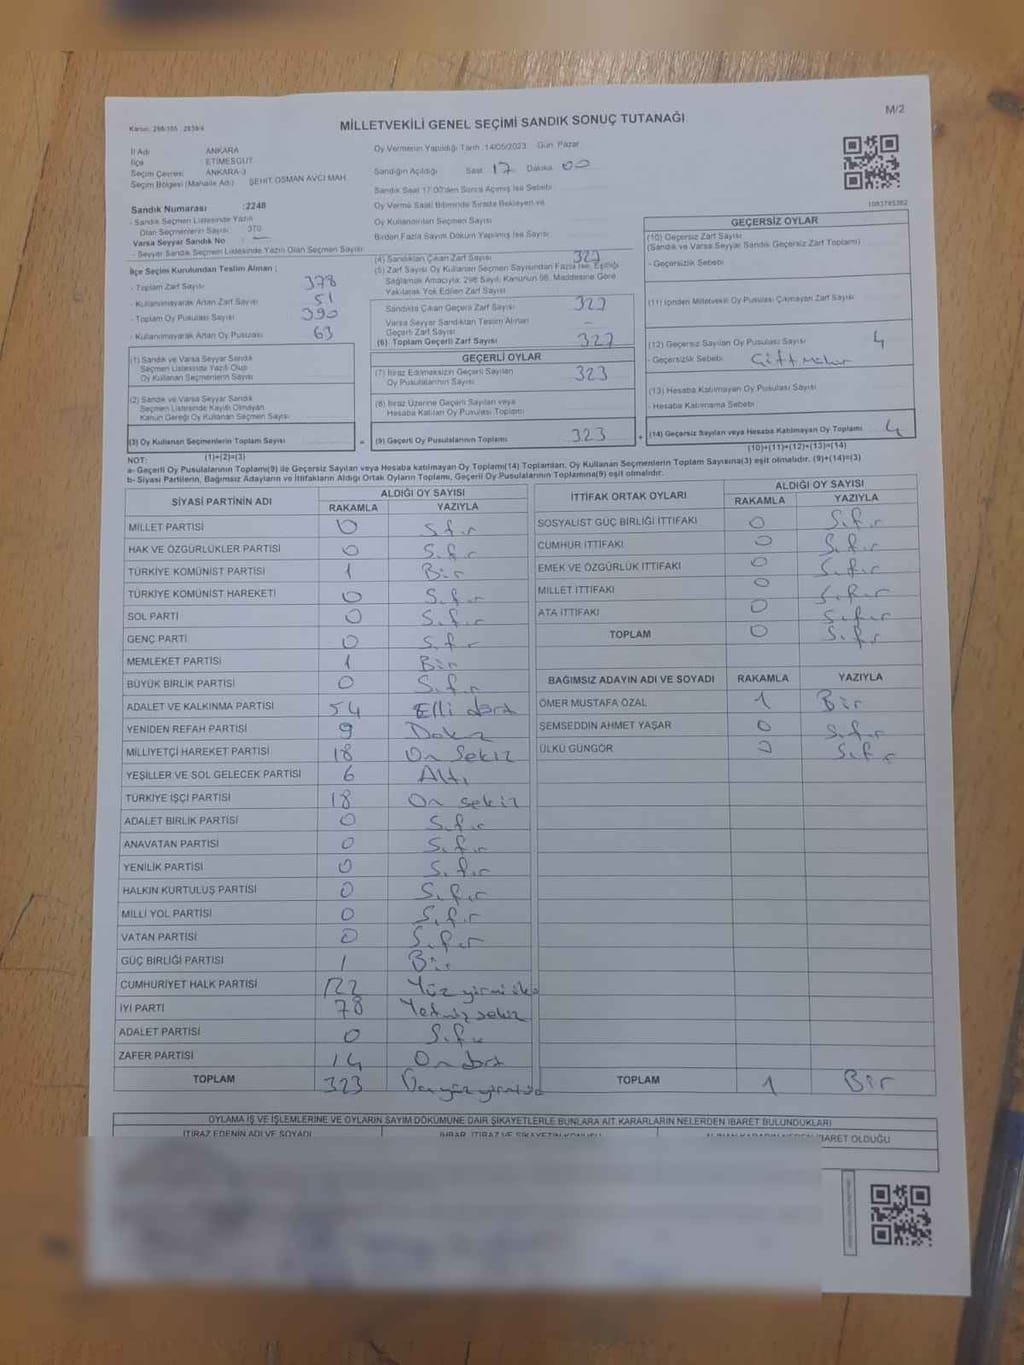 M/2
Kanun: 298/105 : 2839/4
MİLLETVEKİLİ GENEL SEÇİMİ SANDIK SONUÇ TUTANAĞI
İl Adı : ANKARA
İlçe : ETİMESGUT
Seçim Çevresi : ANKARA-3
Seçim Bölgesi (Mahalle Adı) : ŞEHİT OSMAN AVCI MAH.
Sandık Numarası : 2248
- Sandık Seçmen Listesinde Yazılı
Olan Seçmenlerin Sayısı : 370
Varsa Seyyar Sandık No :
- Seyyar Sandık Seçmen Listesinde Yazılı Olan Seçmen Sayısı
Oy Vermenin Yapıldığı Tarih : 14/05/2023 Gün: Pazar
Sandığın Açıldığı Saat: 17 Dakika: 00
Sandık Saat 17:00'den Sonra Açılmış İse Sebebi
Oy Verme Saati Bitiminde Sırada Bekleyen ve
Oy Kullandırılan Seçmen Sayısı
Birden Fazla Sayım Döküm Yapılmış İse Sayısı
İlçe Seçim Kurulundan Teslim Alınan ;
- Toplam Zarf Sayısı : 378
- Kullanılmayarak Artan Zarf Sayısı : 51
- Toplam Oy Pusulası Sayısı : 390
- Kullanılmayarak Artan Oy Pusulası : 63
(1) Sandık ve Varsa Seyyar Sandık
Seçmen Listesinde Yazılı Olup
Oy Kullanan Seçmenlerin Sayısı
(2) Sandık ve Varsa Seyyar Sandık
Seçmen Listesinde Kayıtlı Olmayan
Kanun Gereği Oy Kullanan Seçmen Sayısı
(3) Oy Kullanan Seçmenlerin Toplam Sayısı
(1)+(2)=(3)
(4) Sandıktan Çıkan Zarf Sayısı 327
(5) Zarf Sayısı Oy Kullanan Seçmen Sayısından Fazla İse, Eşitliği
Sağlamak Amacıyla; 298 Sayılı Kanunun 98. Maddesine Göre
Yakılarak Yok Edilen Zarf Sayısı
Sandıkta Çıkan Geçerli Zarf Sayısı 327
Varsa Seyyar Sandıktan Teslim Alınan
Geçerli Zarf Sayısı -
(6) Toplam Geçerli Zarf Sayısı 327
GEÇERLİ OYLAR
(7) İtiraz Edilmeksizin Geçerli Sayılan
Oy Pusulalarının Sayısı 323
(8) İtiraz Üzerine Geçerli Sayılan veya
Hesaba Katılan Oy Pusulası Toplamı
(9) Geçerli Oy Pusulalarının Toplamı 323
1083785382
GEÇERSİZ OYLAR
(10) Geçersiz Zarf Sayısı
(Sandık ve Varsa Seyyar Sandık Geçersiz Zarf Toplamı)
- Geçersizlik Sebebi
(11) İçinden Milletvekili Oy Pusulası Çıkmayan Zarf Sayısı
(12) Geçersiz Sayılan Oy Pusulası Sayısı 4
- Geçersizlik Sebebi : Çift Mühür
(13) Hesaba Katılmayan Oy Pusulası Sayısı
- Hesaba Katılmama Sebebi
(14) Geçersiz Sayılan veya Hesaba Katılmayan Oy Toplamı 4
(10)+(11)+(12)+(13)=(14)
NOT:
a- Geçerli Oy Pusulalarının Toplamı(9) ile Geçersiz Sayılan veya Hesaba katılmayan Oy Toplamı(14) Toplamları, Oy Kullanan Seçmenlerin Toplam Sayısına(3) eşit olmalıdır. (9)+(14)=(3)
b- Siyasi Partilerin, Bağımsız Adayların ve İttifakların Aldığı Ortak Oyların Toplamı, Geçerli Oy Pusulalarının Toplamına(9) eşit olmalıdır.
SİYASİ PARTİNİN ADI ALDIĞI OY SAYISI
RAKAMLA YAZIYLA
MİLLET PARTİSİ 0 Sıfır
HAK VE ÖZGÜRLÜKLER PARTİSİ 0 Sıfır
TÜRKİYE KOMÜNİST PARTİSİ 1 Bir
TÜRKİYE KOMÜNİST HAREKETİ 0 Sıfır
SOL PARTİ 0 Sıfır
GENÇ PARTİ 0 Sıfır
MEMLEKET PARTİSİ 1 Bir
BÜYÜK BİRLİK PARTİSİ 0 Sıfır
ADALET VE KALKINMA PARTİSİ 54 Elli dört
YENİDEN REFAH PARTİSİ 9 Dokuz
MİLLİYETÇİ HAREKET PARTİSİ 18 On Sekiz
YEŞİLLER VE SOL GELECEK PARTİSİ 6 Altı
TÜRKİYE İŞÇİ PARTİSİ 18 On sekiz
ADALET BİRLİK PARTİSİ 0 Sıfır
ANAVATAN PARTİSİ 0 Sıfır
YENİLİK PARTİSİ 0 Sıfır
HALKIN KURTULUŞ PARTİSİ 0 Sıfır
MİLLİ YOL PARTİSİ 0 Sıfır
VATAN PARTİSİ 0 Sıfır
GÜÇ BİRLİĞİ PARTİSİ 1 Bir
CUMHURİYET HALK PARTİSİ 122 Yüz yirmi iki
İYİ PARTİ 78 Yetmiş sekiz
ADALET PARTİSİ 0 Sıfır
ZAFER PARTİSİ 14 On dört
TOPLAM 323
İTTİFAK ORTAK OYLARI ALDIĞI OY SAYISI
RAKAMLA YAZIYLA
SOSYALİST GÜÇ BİRLİĞİ İTTİFAKI 0 Sıfır
CUMHUR İTTİFAKI 0 Sıfır
EMEK VE ÖZGÜRLÜK İTTİFAKI 0 Sıfır
MİLLET İTTİFAKI 0 Sıfır
ATA İTTİFAKI 0 Sıfır
TOPLAM 0 Sıfır
BAĞIMSIZ ADAYIN ADI VE SOYADI RAKAMLA YAZIYLA
ÖMER MUSTAFA ÖZAL 1 Bir
ŞEMSEDDİN AHMET YAŞAR 0 Sıfır
ÜLKÜ GÜNGÖR 0 Sıfır
TOPLAM 1 Bir
OYLAMA İŞ VE İŞLEMLERİNE VE OYLARIN SAYIM DÖKÜMÜNE DAİR ŞİKAYETLERLE BUNLARA AİT KARARLARIN NELERDEN İBARET BULUNDUKLARI
İTİRAZ EDENİN ADI VE SOYADI İHBAR, İTİRAZ VE ŞİKAYETİN KONUSU İBARET OLDUĞU